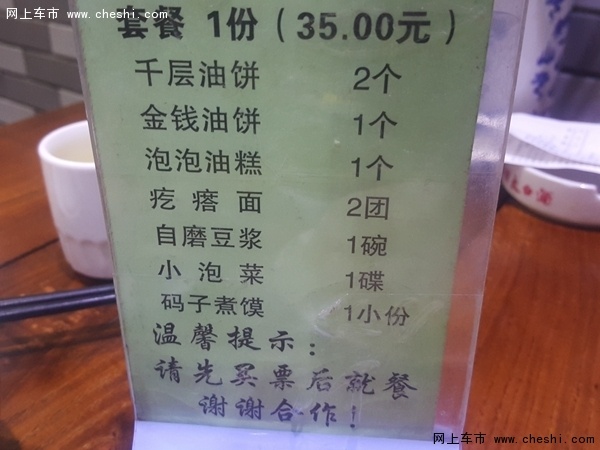 网上车市 www.cheshi.com
套餐 1份(35.00元)
千层油饼 2个
金钱油饼 1个
泡泡油糕 1个
疙瘩面 2团
自磨豆浆 1碗
小泡菜 1碟
码子煮馍 1小份
温馨提示：
请先买票后就餐
谢谢合作！
网上车市 www.cheshi.com